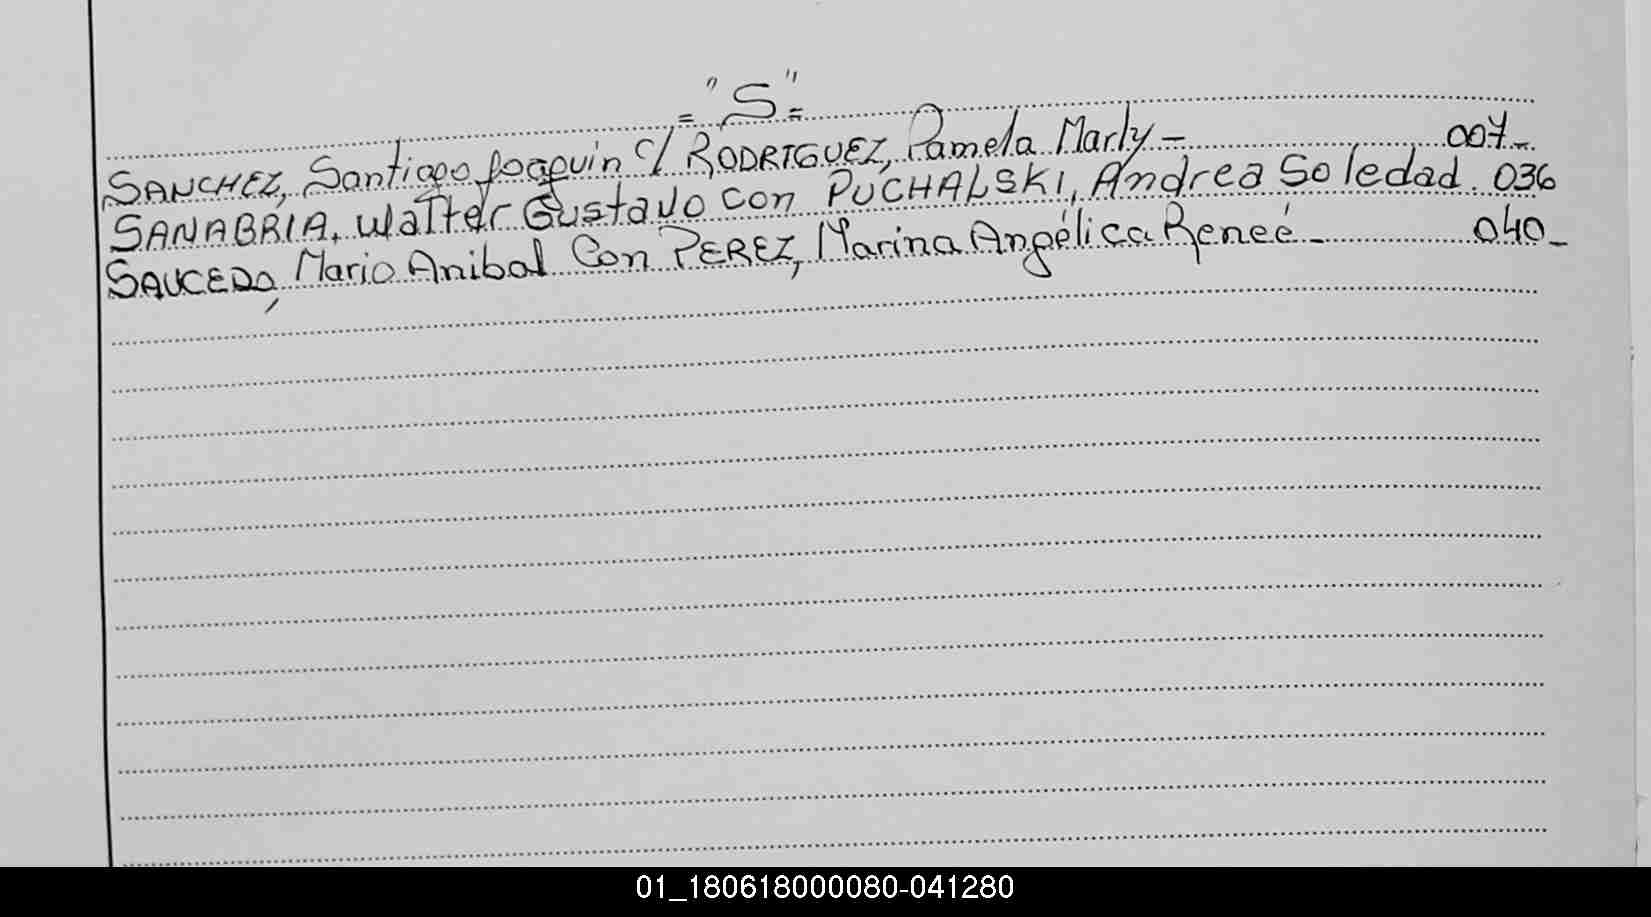 = "S" =
SANCHEZ, Santiago Joaquin C/ RODRIGUEZ, Pamela Marly - 007-
SANABRIA, Walter Gustavo con PUCHALSKI, Andrea Soledad. 036
SAUCEDO, Mario Anibal Con PEREZ, Marina Angélica Reneé - 040-
01_180618000080-041280